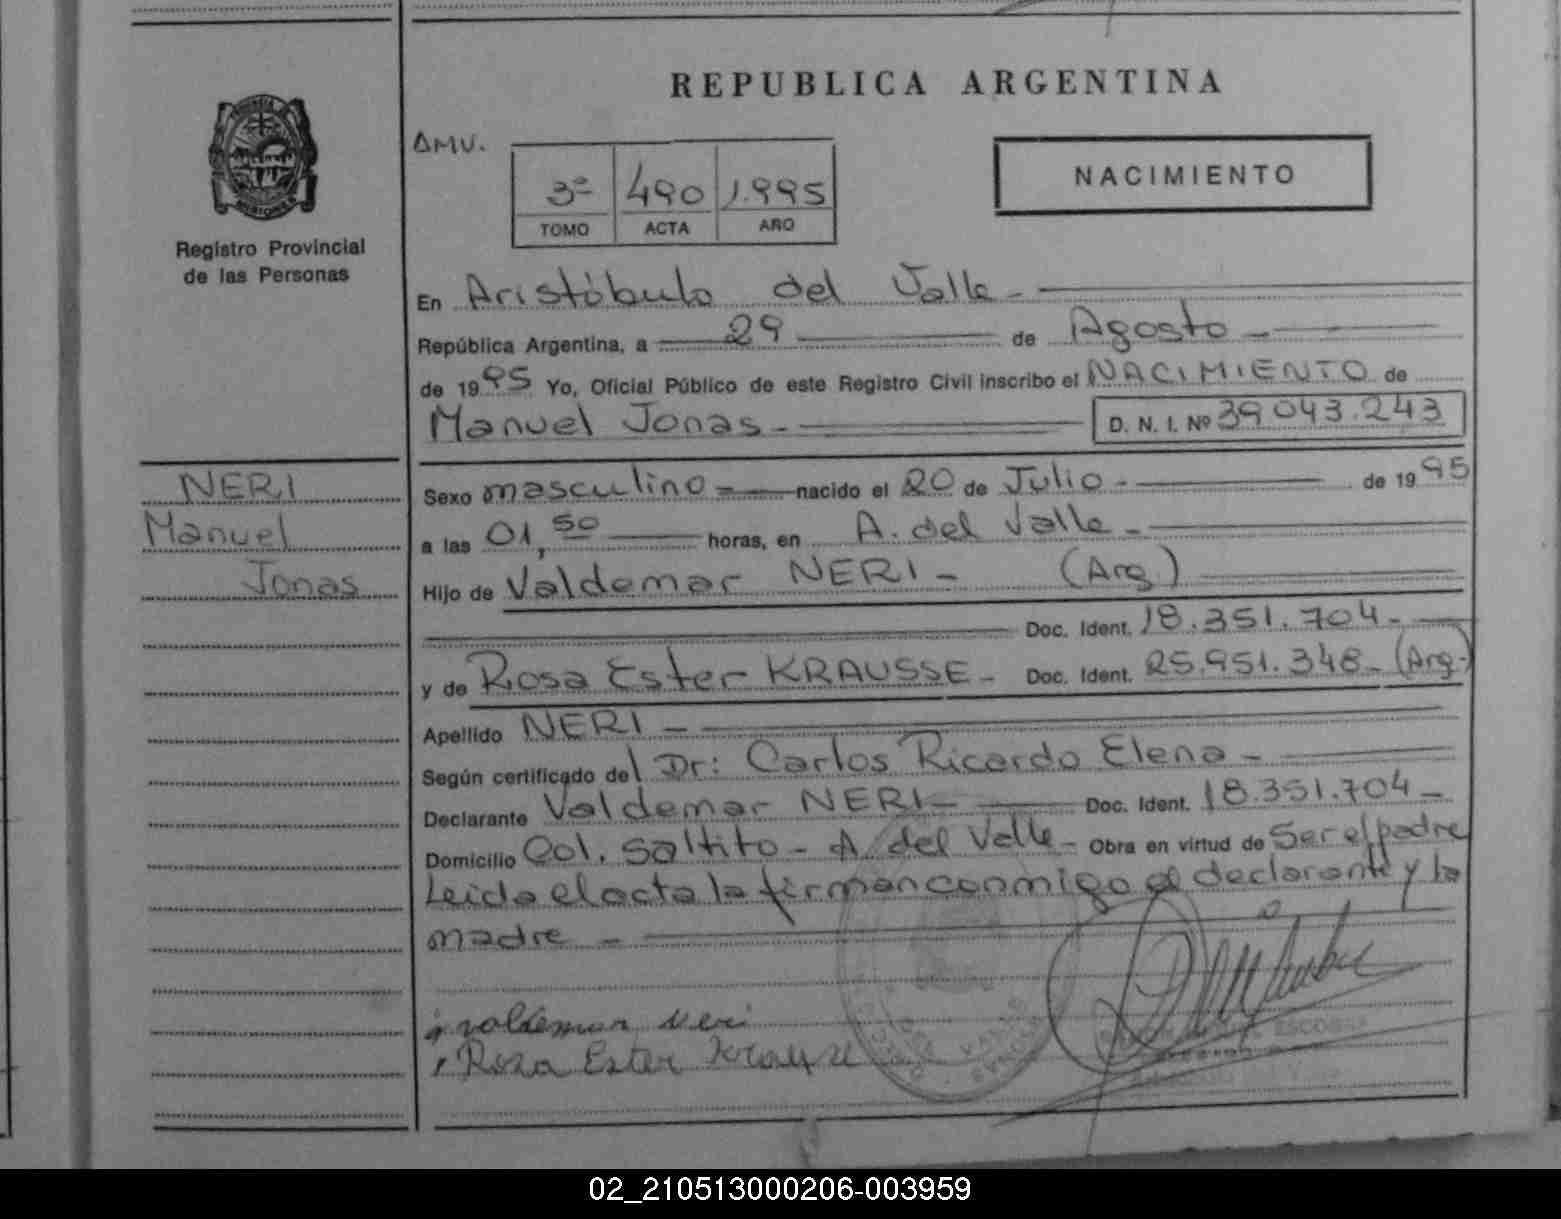 REPUBLICA ARGENTINA
AMV.
3º 490 1.995
TOMO ACTA AÑO
NACIMIENTO
Registro Provincial
de las Personas
En Aristóbulo del Valle -
República Argentina, a 29 de Agosto -
de 1995 Yo, Oficial Público de este Registro Civil inscribo el NACIMIENTO de
Manuel Jonas - D. N. I. Nº 39 043.243
NERI
Manuel
Jonas
Sexo masculino - nacido el 20 de Julio - de 1995
a las 01,50 horas, en A. del Valle -
Hijo de Valdemar NERI - (Arg)
Doc. Ident. 18.351.704 -
y de Rosa Ester KRAUSSE - Doc. Ident. 25.951.348 - (Arg.)
Apellido NERI -
Según certificado del Dr: Carlos Ricardo Elena -
Declarante Valdemar NERI - Doc. Ident. 18.351.704 -
Domicilio Col. Saltito - A. del Valle - Obra en virtud de Ser el padre
Leida el acta la firman conmigo el declarante y la
madre -
valdemar neri
Rosa Ester Krause
ESCOBAR
02_210513000206-003959